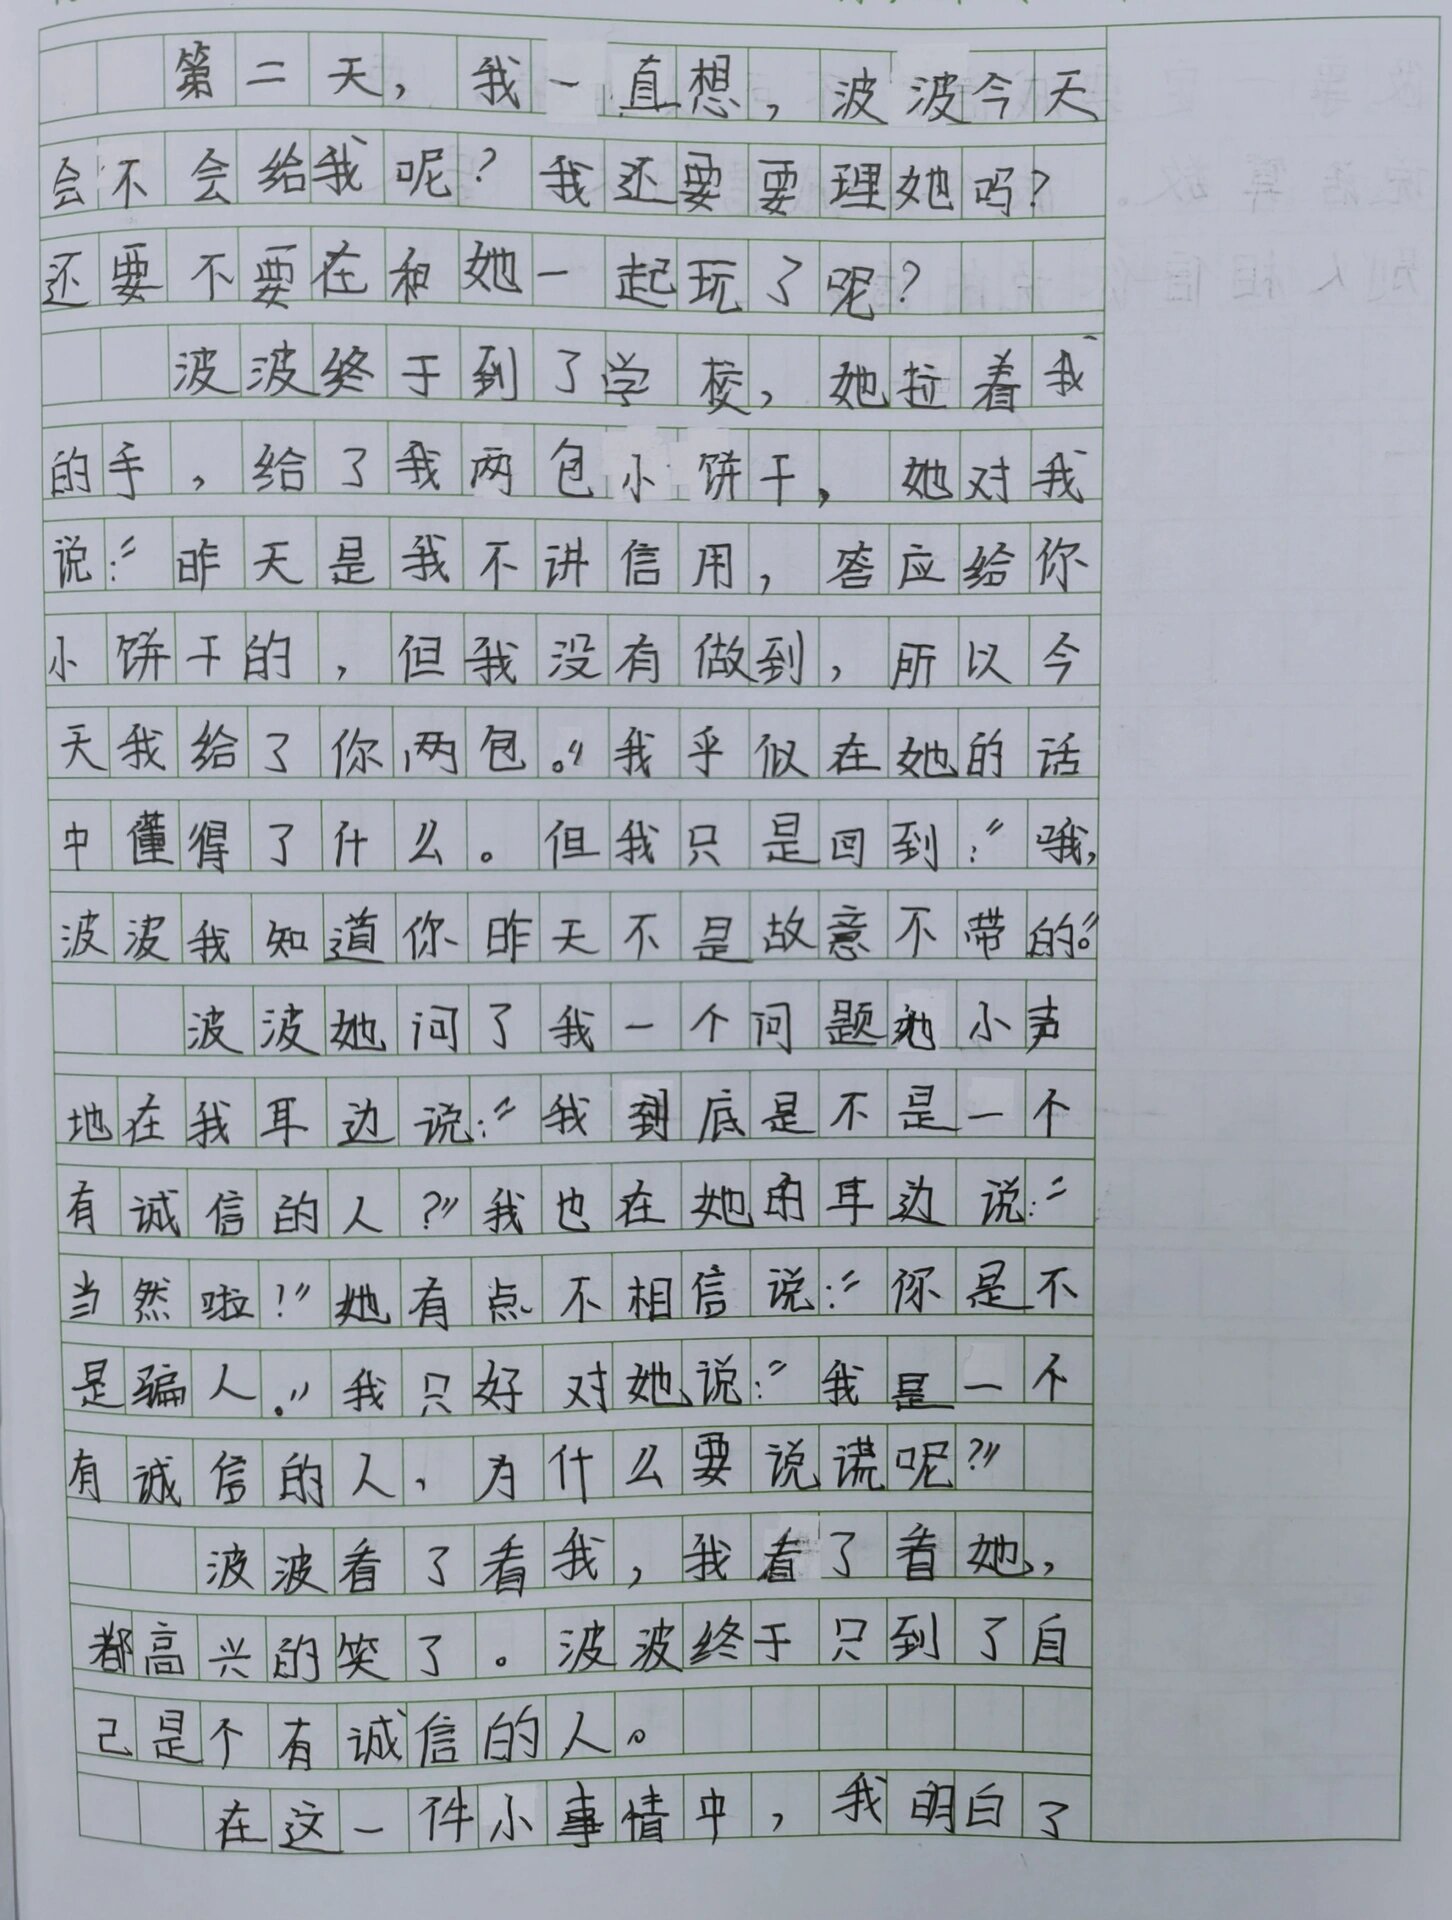 第二天，我一直想，波波今天
会不会给我呢？我还要要理她吗？
还要不要在和她一起玩了呢？
波波终于到了学校，她拉着我
的手，给了我两包小饼干，她对我
说：“昨天是我不讲信用，答应给你
小饼干的，但我没有做到，所以今
天我给了你两包。”我乎似在她的话
中懂得了什么。但我只是回到：“哦，
波波我知道你昨天不是故意不带的。”
波波她问了我一个问题她小声
地在我耳边说：“我到底是不是一个
有诚信的人？”我也在她的耳边说：“
当然啦！”她有点不相信说：“你是不
是骗人。”我只好对她说：“我是一个
有诚信的人，为什么要说谎呢？”
波波看了看我，我看了看她，
都高兴的笑了。波波终于只到了自
己是个有诚信的人。
在这一件小事情中，我明白了